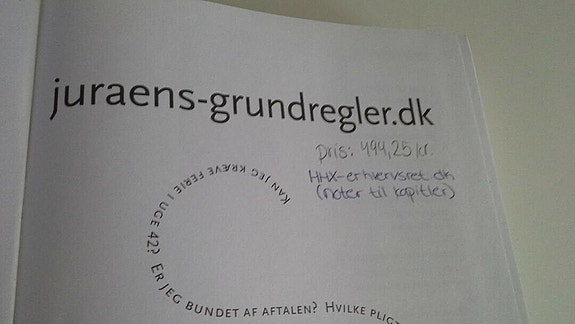 juraens-grundregler.dk
pris: 494,25 kr.
HHX-erhvervsret.dk
(noter til kapitler)
KAN JEG KRÆVE FERIE I UGE 42? ER JEG BUNDET AF AFTALEN? HVILKE